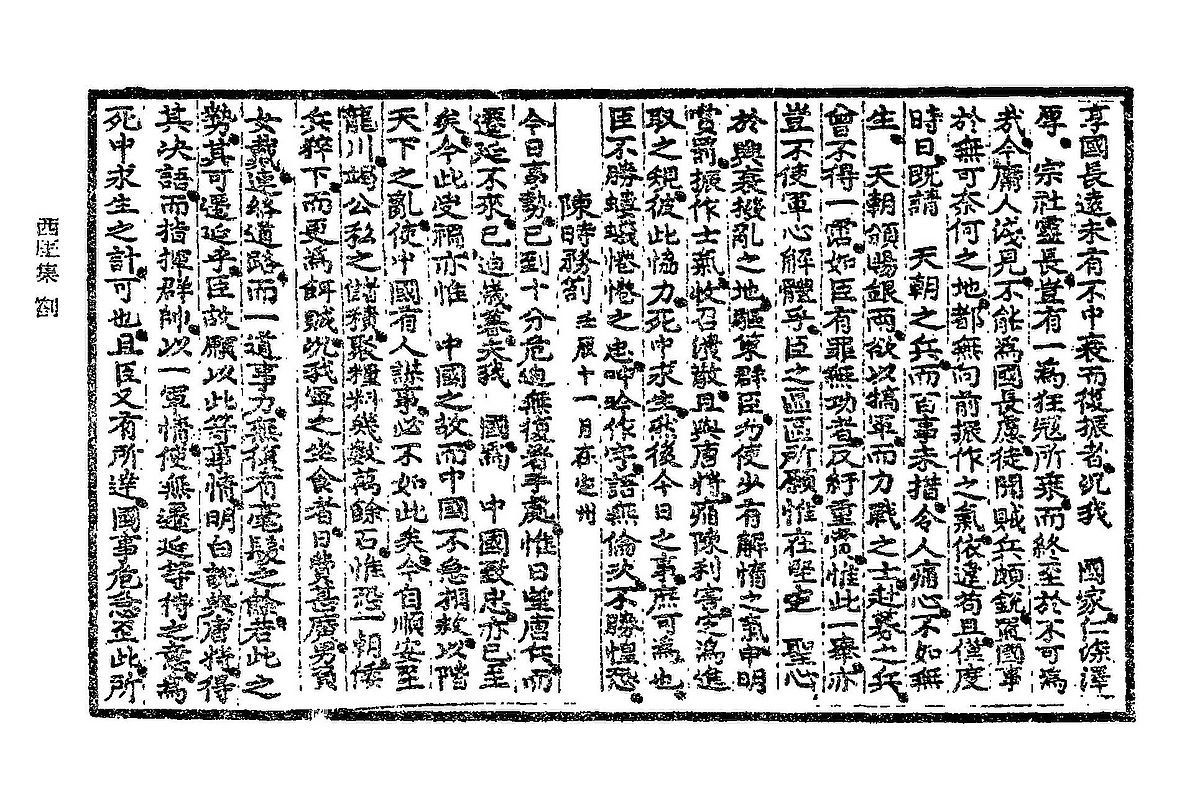 享國長遠未有不中衰而復振者況我 國家仁深澤
厚 宗社靈長豈有一爲狂寇所乘而終至於不可爲
哉今庸人淺見不能爲國長慮徒聞賊兵頗銳罷國事
於無可奈何之地都無向前振作之氣依違苟且僅度
時日旣請 天朝之兵而百事未措令人痛心不如無
生 天朝頒賜銀兩欲以犒軍而力戰之士赴募之兵
曾不得一霑如臣有罪無功者反紆重賞惟此一擧亦
豈不使軍心解體乎臣之區區所願惟在堅定 聖心
於興衰撥亂之地驅策群臣勿使少有解惰之氣申明
賞罰振作士氣收召潰散且與唐將痛陳利害定爲進
取之規彼此恊力死中求生然後今日之事庶可爲也
臣不勝螻蟻惓惓之忠呻吟作字語無倫次不勝惶恐
陳時務箚 壬辰十一月在定州
今日事勢已到十分危迫無復著手處惟日望唐兵而
遷延不來已迫歲暮夫我 國爲 中國致忠亦已至
矣今此受禍亦惟 中國之故而中國不急捄救以階
天下之亂使中國有人謀事必不如此矣今自順安至
龍川竭公私之儲積聚糧料幾數萬餘石惟恐一朝倭
兵猝下而更爲餌賊況我軍之坐食者日費甚廣男負
女戴連絡道路而一道事力無復有毫髮之餘若此之
勢其可遷延乎臣故願以此等事情明白說與唐將得
其決語而指揮群帥以一軍情使無遷延等待之意爲
死中求生之計可也且臣又有所達國事危急至此所
西厓集 箚